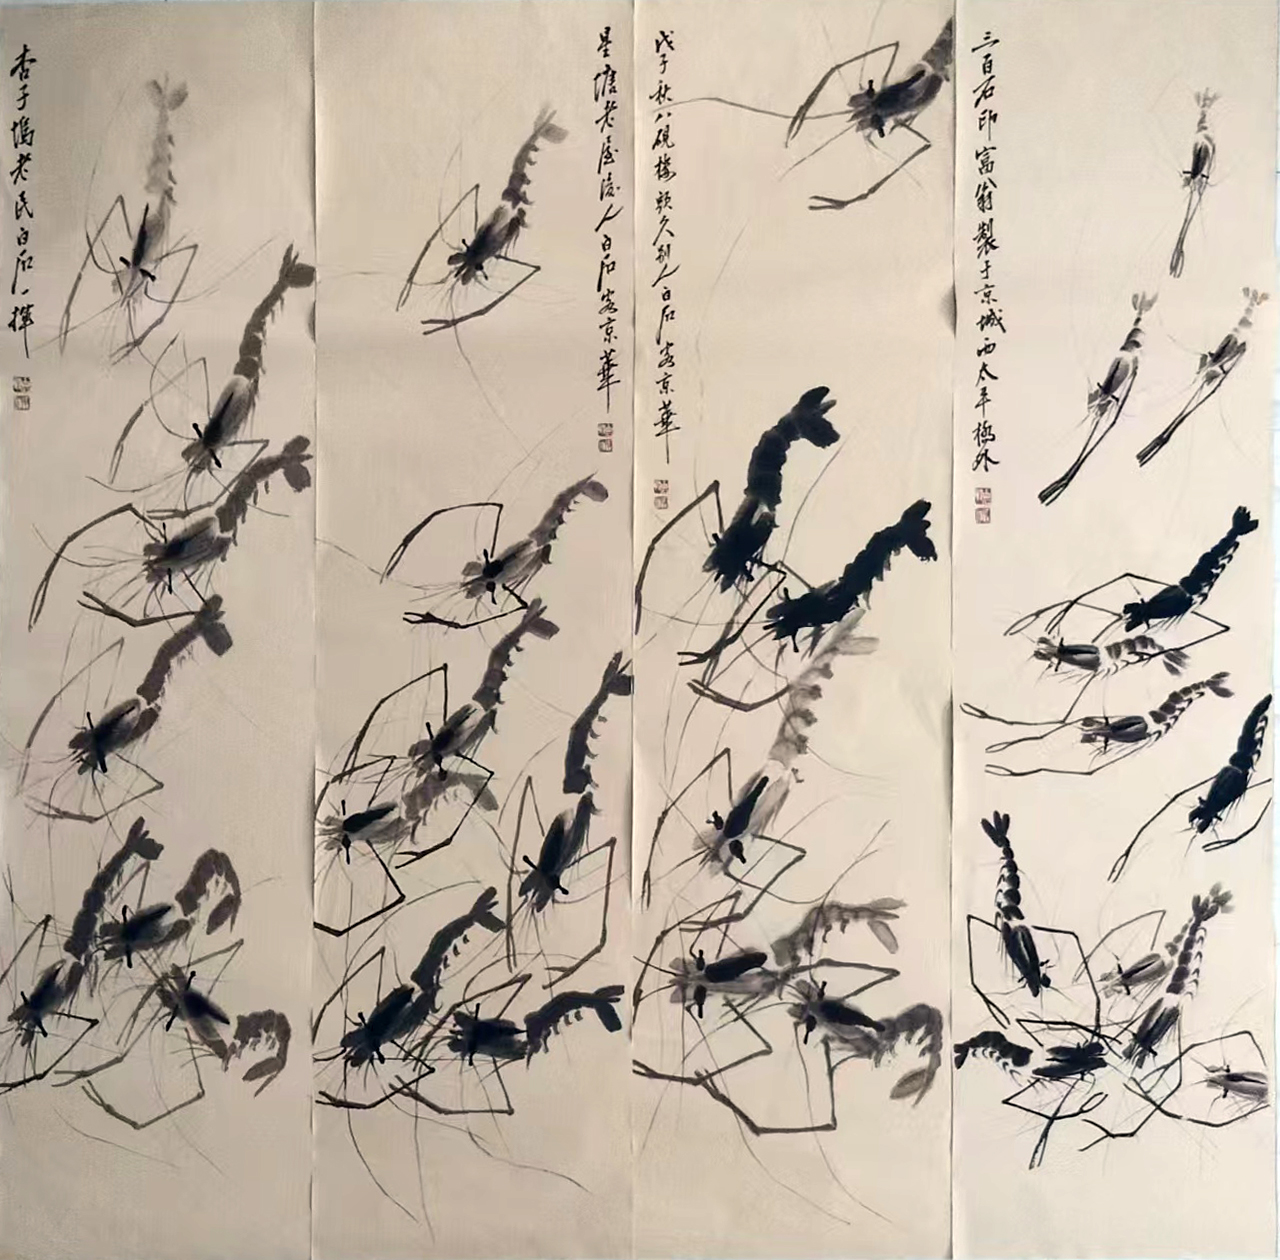 三百石印富翁製于京城西太平橋外
戊子秋八硯樓頭久別人白石客京華
星塘老屋後人白石客京華
杏子塢老民白石一揮